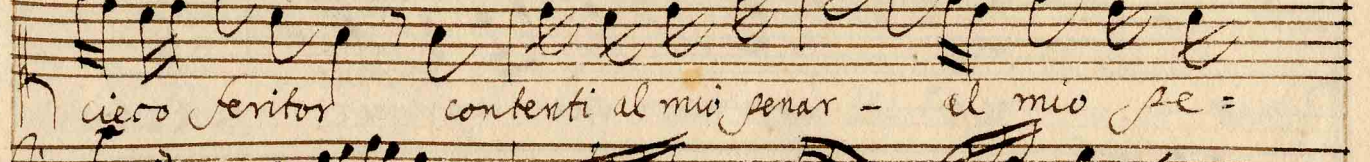 cieco feritor contenti al mio penar - al mio pe=